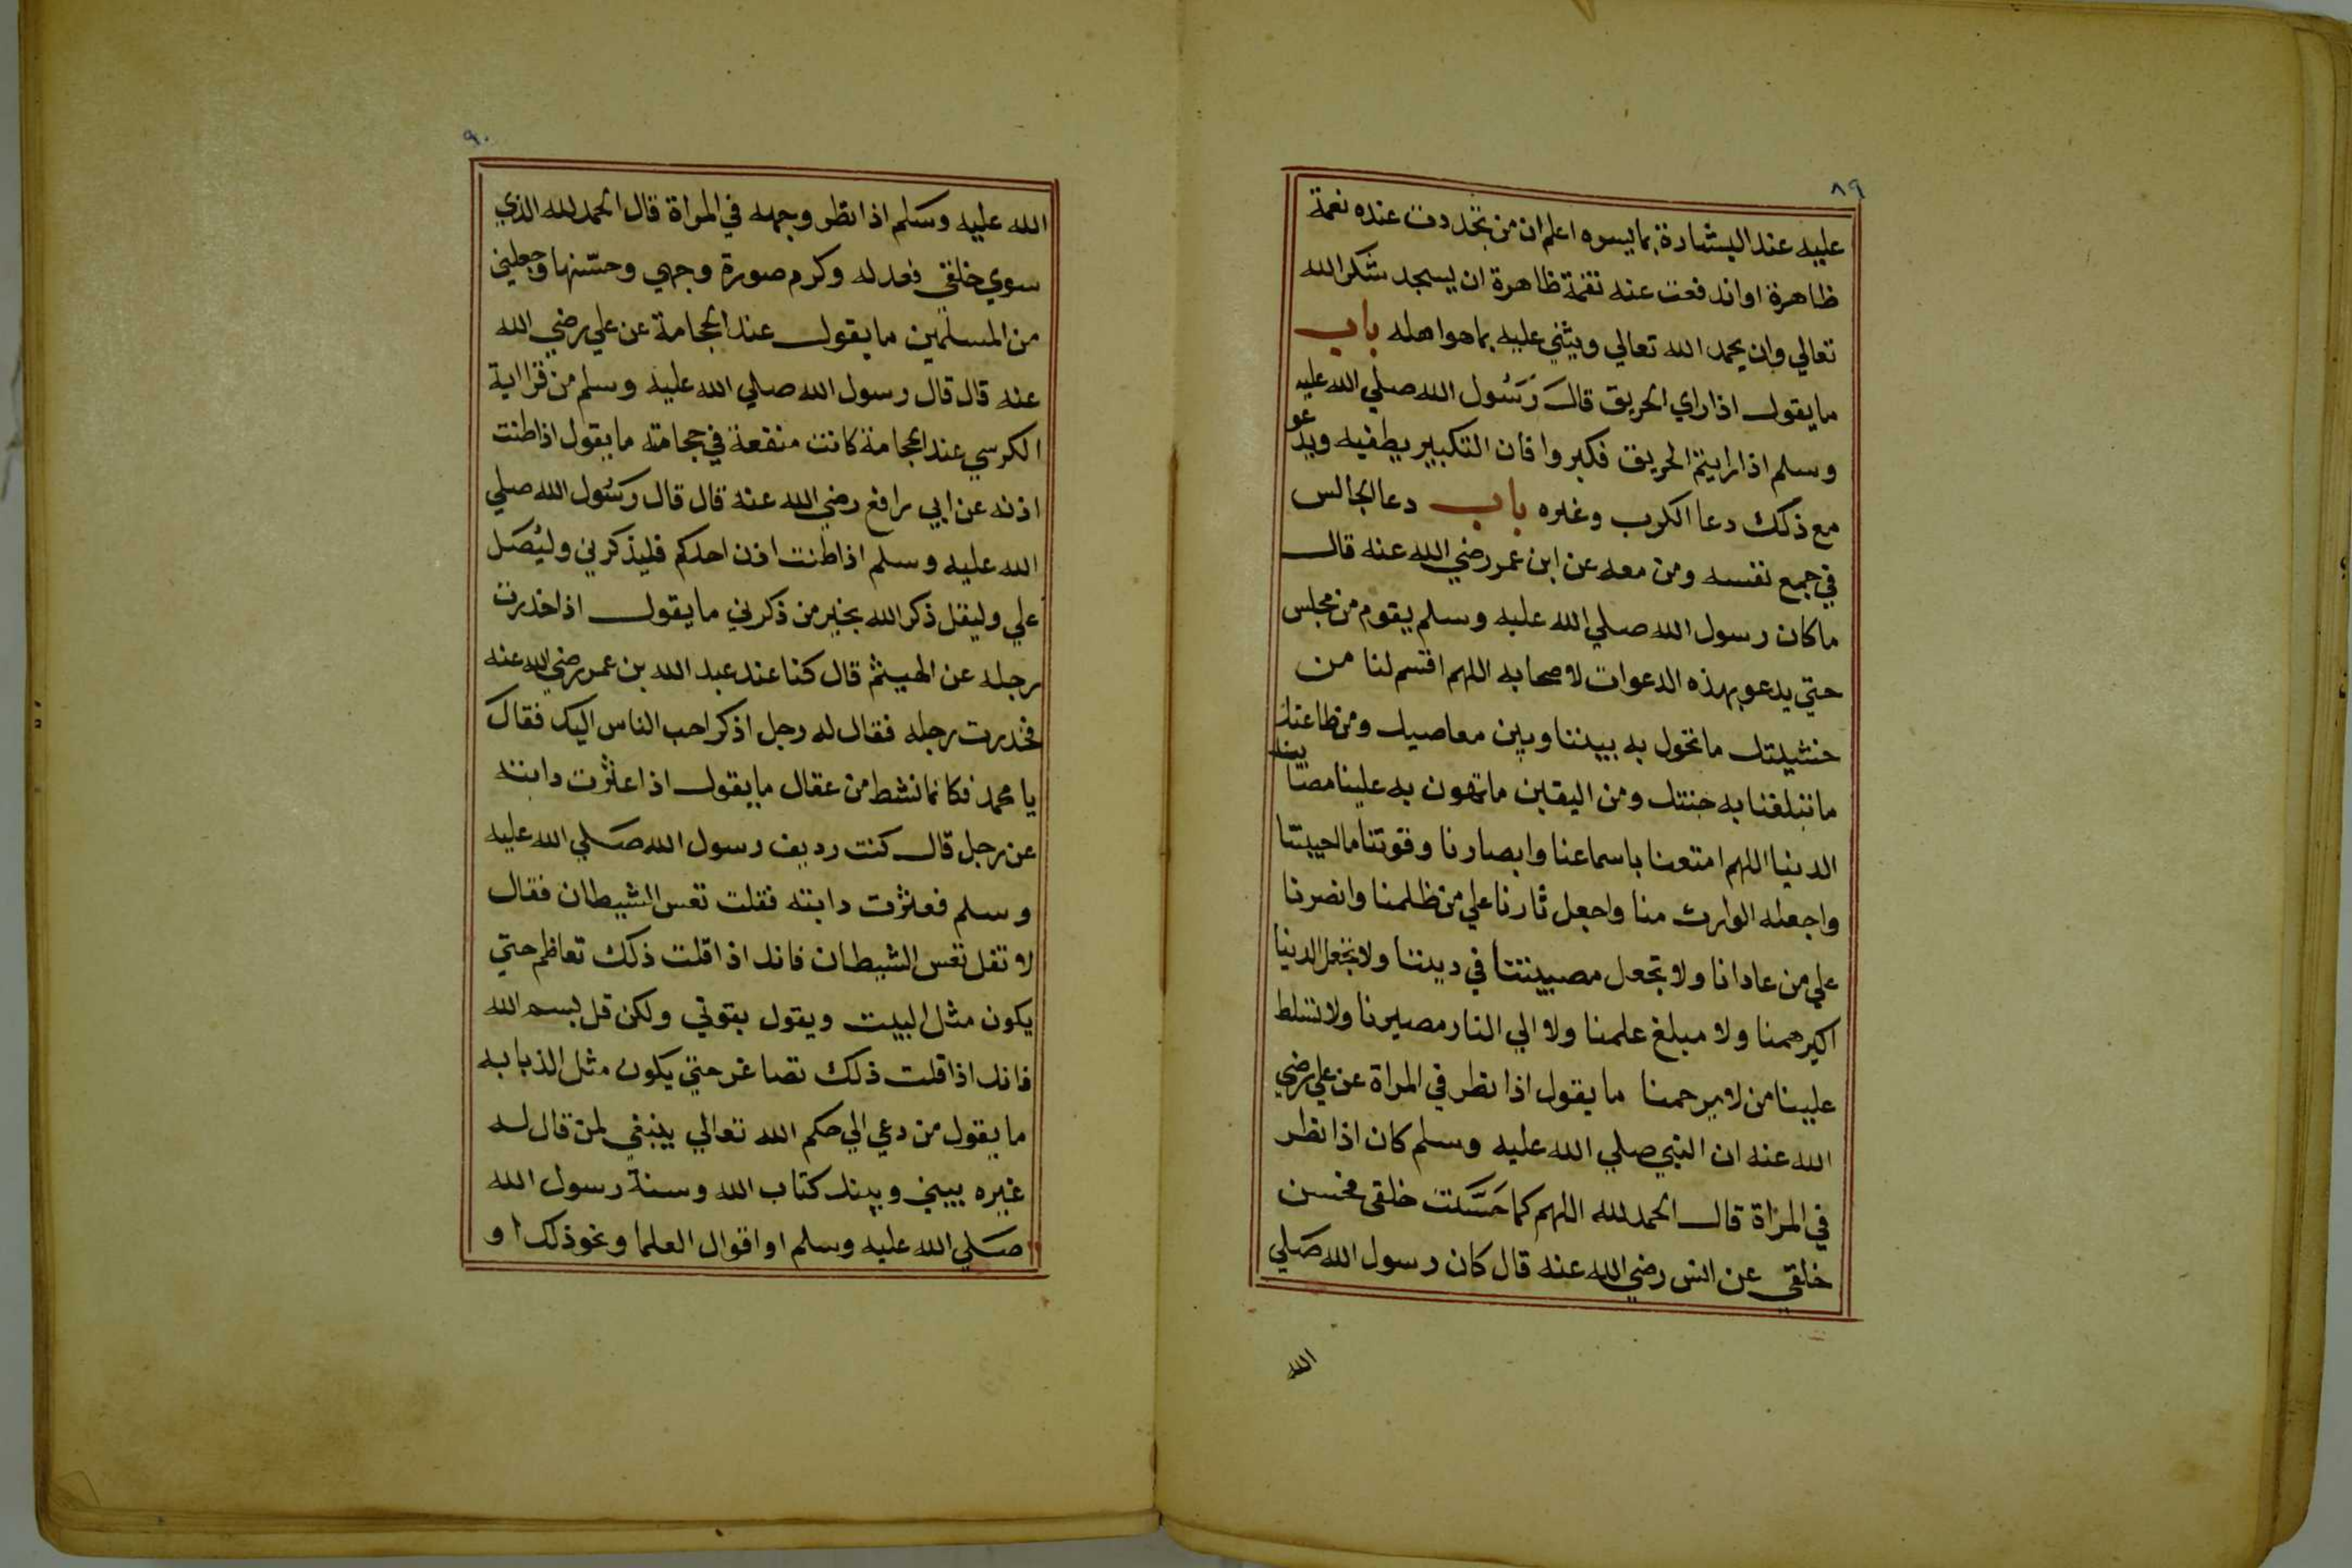 ٨٩
عليه عند البشارة بما يسره اعلم ان من تجددت عنده نعمة
ظاهرة او اندفعت عنه نقمة ظاهرة ان يسجد شكرا لله
تعالي وان يحمد الله تعالي ويثني عليه بما هو اهله باب
ما يقول اذا راي الحريق قال رَسُول الله صلي الله عليه
وسلم اذا رايتم الحريق فكبروا فان التكبير يطفيه ويدعو
مع ذلك دعا الكرب وغيره باب دعا الجالس
في جمع نفسه ومن معه عن ابن عمر رضي الله عنه قال
ما كان رسول الله صلي الله عليه وسلم يقوم من مجلس
حتي يدعو بهذه الدعوات لاصحابه اللهم اقسم لنا من
خشيتك ما تحول به بيننا وبين معاصيك ومن طاعتك
ما تبلغنا به جنتك ومن اليقين ما تهون به علينا مصايب
الدنيا اللهم امتعنا باسماعنا وابصارنا وقوتنا ما احييتنا
واجعله الوارث منا واجعل ثارنا علي من ظلمنا وانصرنا
علي من عادانا ولا تجعل مصيبتنا في ديننا ولا تجعل الدنيا
اكبر همنا ولا مبلغ علمنا ولا الي النار مصيرنا ولا تسلط
علينا من لا يرحمنا ما يقول اذا نظر في المراة عن علي رضي
الله عنه ان النبي صلي الله عليه وسلم كان اذا نظر
في المراة قال الحمد لله اللهم كما حَسَّنت خلقي فحسن
خلقي عن انس رضي الله عنه قال كان رسول الله صلي
الله
٩٠
الله عليه وسلم اذا نظر وجهه في المراة قال الحمد لله الذي
سوي خلقي فعدله وكرم صورة وجهي وحسّنها وجعلني
من المسلمين ما يقول عند الحجامة عن علي رضي الله
عنه قال قال رسول الله صلي الله عليه وسلم من قرا اية
الكرسي عند الحجامة كانت منفعة في حجامته ما يقول اذا طنت
اذنه عن ابي رافع رضي الله عنه قال قال رسُول الله صلي
الله عليه وسلم اذا طنت اذن احدكم فليذكرني وليُصَل
علي وليقل ذكر الله بخير من ذكرني ما يقول اذا خدرت
رجله عن الهيثم قال كنا عند عبد الله بن عمر رضي الله عنه
فخدرت رجله فقال له رجل اذكر احب الناس اليك فقال
يا محمد فكانما نشط من عقال ما يقول اذا عثرت دابته
عن رجل قال كنت رديف رسول الله صَلي الله عليه
وسلم فعثرت دابته فقلت تعس الشيطان فقال
لا تقل تعس الشيطان فانك اذا قلت ذلك تعاظم حتي
يكون مثل البيت ويقول بقوتي ولكن قل بسم الله
فانك اذا قلت ذلك تصاغر حتي يكون مثل الذبابه
ما يقول من دعي الي حكم الله تعالي ينبغي لمن قال له
غيره بيني وبينك كتاب الله وسنة رسول الله
صَلي الله عليه وسلم او اقوال العلما ونحو ذلك او